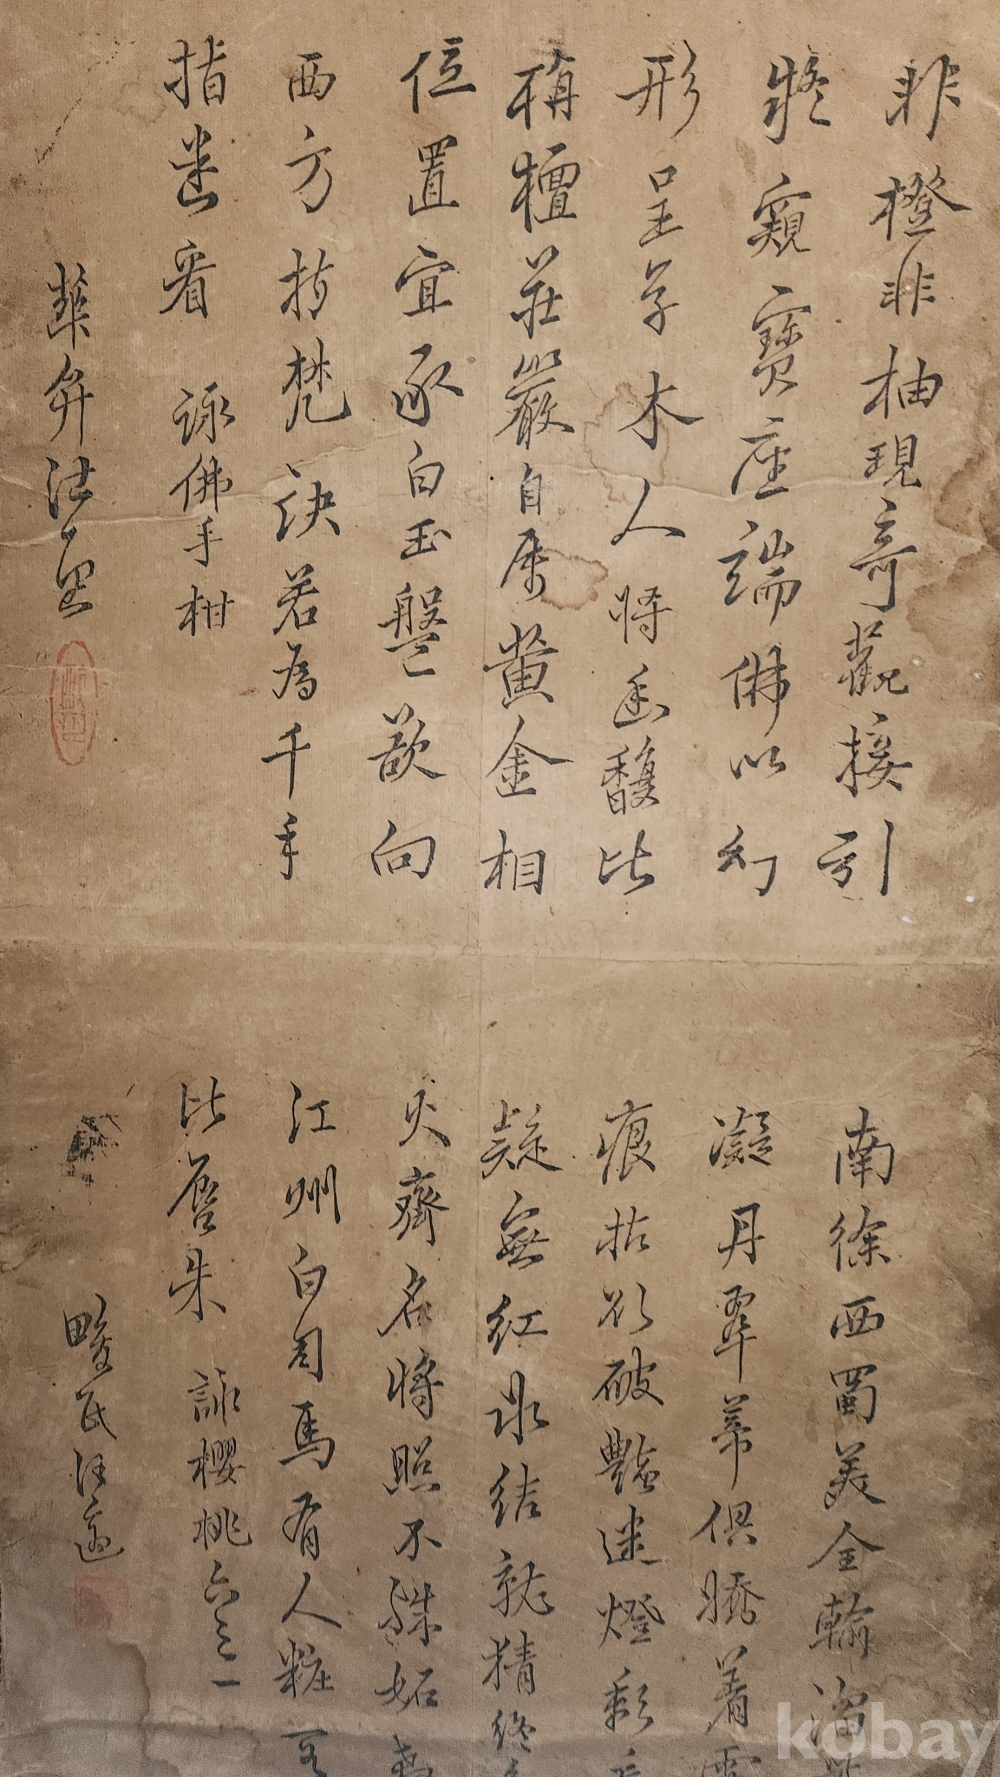 非橙非柚現奇觀接引
將窺寶座端佛以幻
形呈草木人將幽馥比
栴檀莊嚴自屬黃金相
位置宜承白玉盤欲向
西方持梵訣若為千手
指業看 詠佛手柑
南徐西蜀美全輸
凝丹翠蒂俱勝着
痕拈欲破豔迷燈彩
疑無紅冰結就精
火齊名將照不殊妬
江州白司馬有人粧
比唇朱 詠櫻桃
kobay